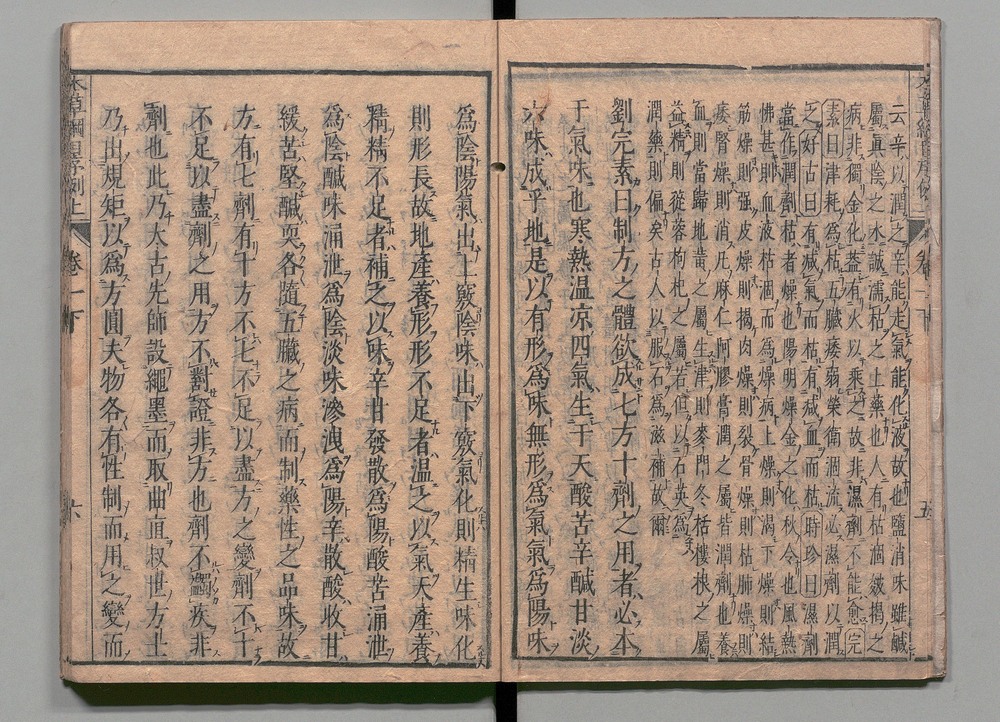 云辛以潤之辛能走氣能化液故也鹽消味雖鹹
屬眞陰之水誠濡枯之上藥也人有枯涸皴揭之
病非獨金化蓋有火以乘之故非濕劑不能愈完
素曰津耗爲枯五臟痿弱榮衛涸流必濕劑以潤
之好古曰有减氣而枯有减血而枯時珍曰濕劑
當作潤劑枯者燥也陽明燥金之化秋令也風熱
怫甚則血液枯涸而爲燥病上燥則渴下燥則結
筋燥則强皮燥則揭肉燥則裂骨燥則枯肺燥則
痿腎燥則消凡麻仁阿膠膏潤之屬皆潤劑也養
血則當歸地黃之屬生津則麥門冬栝樓根之屬
益精則從蓉枸杞之屬若但以石英爲
潤藥則偏矣古人以服石爲滋補故爾
劉完素曰制方之體欲成七方十劑之用者必本
于氣味也寒熱温凉四氣生于天酸苦辛鹹甘淡
六味成乎地是以有形爲味無形爲氣氣爲陽味
五
爲陰陽氣出上竅陰味出下竅氣化則精生味化
則形長故地產養形形不足者温之以氣天產養
精精不足者補之以味辛甘發散爲陽酸苦涌泄
爲陰鹹味涌泄爲陰淡味滲洩爲陽辛散酸收甘
緩苦堅鹹耎各隨五臟之病而制藥性之品味故
方有七劑有十方不七不足以盡方之變劑不十
不足以盡劑之用方不對證非方也劑不蠲疾非
劑也此乃大古先師設繩墨而取曲直叔世方士
乃出規矩以爲方圓夫物各有性制而用之變而
本草綱目序例上 卷一下 六